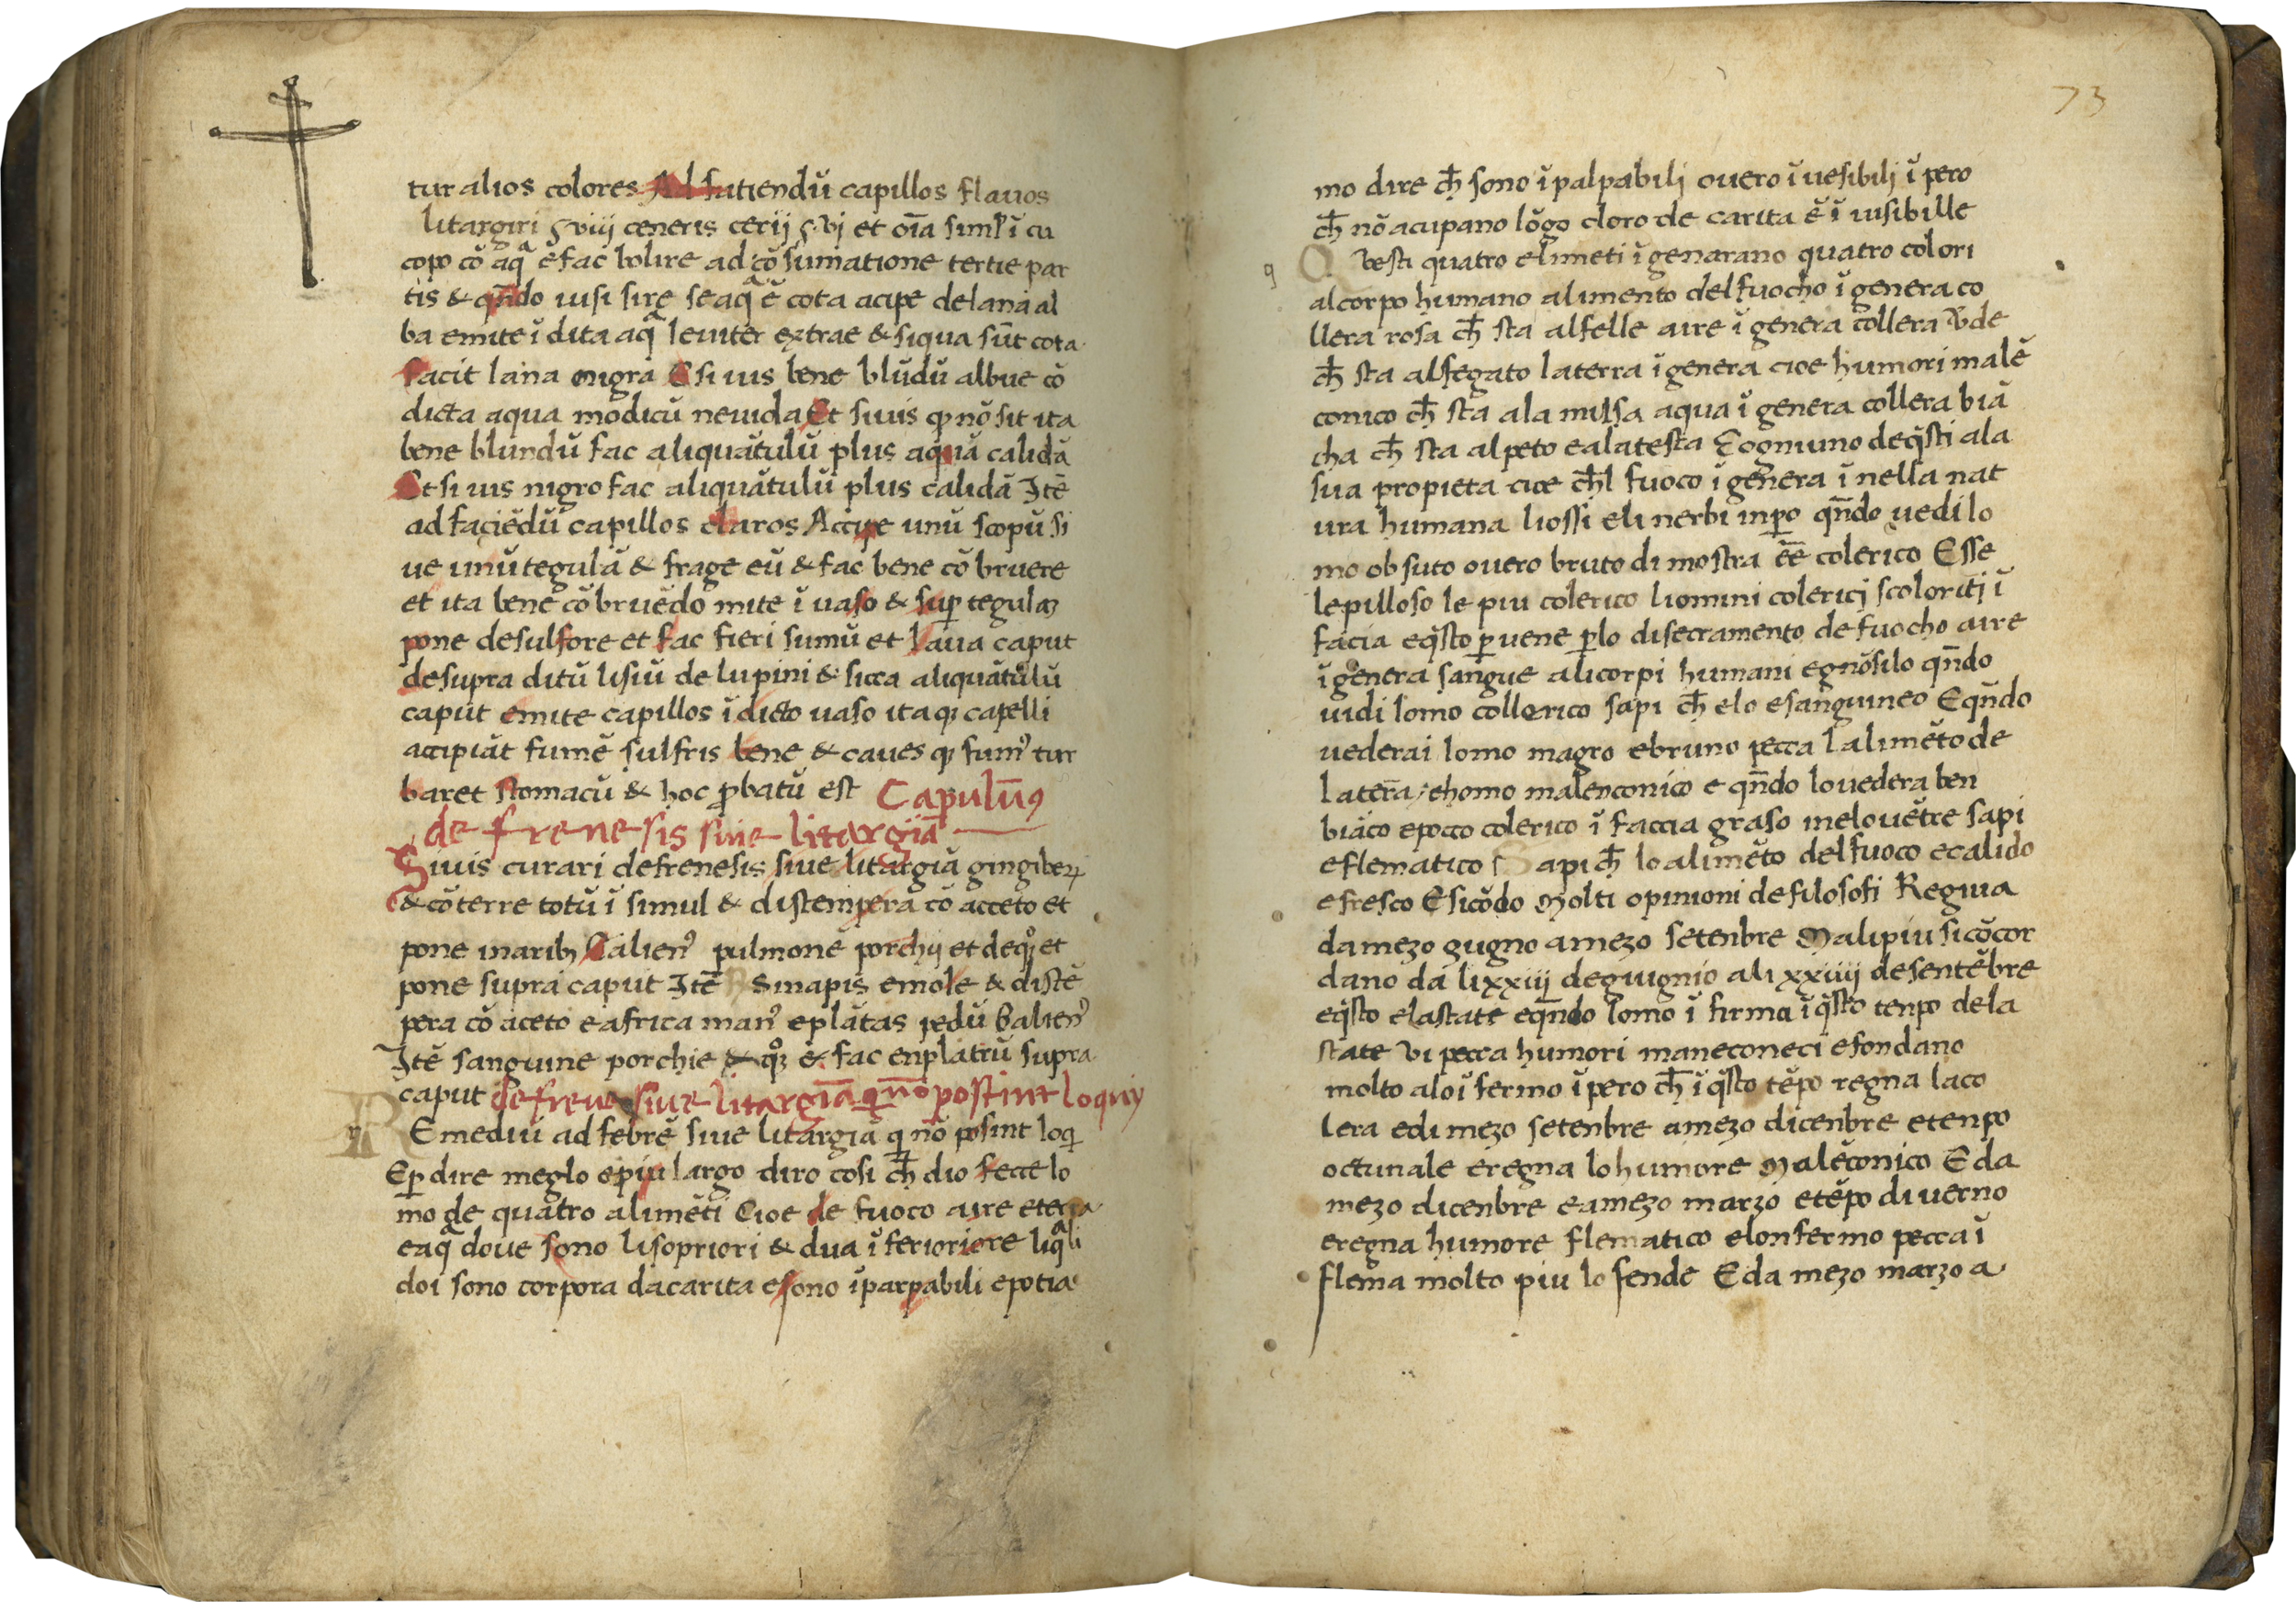 tur alios colores Ad fatiendū capillos flavos
litargiri ʒ viiij ceneris cerij ʒ vj et oīa siml' ī cu
copo cō aq̄ e fac bolire ad cōsumatione tertie par
tis & qn̄do uisi sire seaq̄ ē cota acipe de lana al
ba emite ī dita aq̄ leuiter extrae & siqua sūt cota
facit lana nigra E si uis bene blūdū albue cō
dicta aqua modicū neuida Et si uis q nō sit ita
bene blundū fac aliquātulū plus aquā calidā
Et si uis nigro fac aliquātulū plus calidā Itē
ad faciēdū capillos claros Accipe unū scopū si
ue unū tegulā & frage eū & fac bene cō bruere
et ita bene cō bruēdo mite ī uaso & sup tegulaȝ
pone de sulfore et fac fieri fumū et laua caput
de supra ditū lisiū de lupini & sicca aliquātulū
caput emite capillos ī dicto uaso ita q capelli
accipiāt fumē sulfris bene & caues q fum⁹ tur
baret stomacū & hoc ꝓbatū est Capulūm⁹
de frenesis siue litargīa
Siuis curari de frenesis siue litargiā gingibeꝝ
& cōterre totū ī simul & distempera cō acceto et
pone naribȝ Galien⁹ pulmonē porchij et de qȝ et
pone supra caput Itē Sinapis emole & distē
pera cō aceto e africa man⁹ e plātas pedū Galien⁹
Itē sanguine porchie & qȝ & fac enplatrū supra
caput de frene siue litargīa q nō postint loquiy
Remediū ad febrē siue litargiā q nō posint loq
E ꝑ dire meglo epiu largo diro cosi cħ dio fecce lo
mo de quatro alimēti Cioe de fuoco aire eterra
eaq̄ doue sono li sopriori & dua ī ferioriore liq̄li
doi sono corpora da carita e sono īparpabili epotia
73
mo dire cħ sono ī palpabilj ouero ī uesibilj ī pero
cħ nō acupano lōgo cloro de carita ē ī uisibille
q Q vesti quatro elimeti ī genarano quatro colori
al corpo humano alimento del fuocho ī genera co
llera rosa cħ sta alfelle aire ī genera collera Vde
cħ sta alfegato la terra ī genera cioe humori malē
conico cħ sta ala milsa aqua ī genera collera biā
cha cħ sta alpeto e ala testa E ognuno de q̄sti ala
sua propieta cioe cħl fuoco ī genera ī nella nat
ura humana li ossi eli nerbi inꝑo qn̄do uedi lo
mo ob suto ouero bruto di mostra ēē colerico E sse
le pilloso le piu colerico li omini colericj scoloritj ī
facia eq̄sto ꝑuene ꝑlo disecramento de fuocho aire
ī genera sangue ali corpi humani egnōsilo qn̄do
uidi lomo collerico sapi cħ elo e sanguineo E qn̄do
uederai lomo magro e bruno pecca l alimēto de
la terā, e homo malenconico e qn̄do lo uedera ben
biāco e poco colerico ī faccia graso inelo uētre sapi
e flematico Sapi cħ lo alimēto del fuoco e calido
e fresco E sicōdo molti opinioni de filosofi Regnia
da mezo gugno a mezo setenbre Mali piu si cōcor
dano da li xxiij de giugnio ali xxiiij de sentēbre
eq̄sto e lastate eqn̄do lomo ī firma ī q̄sto tenpo de la
state vi pecca humori maneconeci e fondano
molto alo ī fermo ī pero cħ ī q̄sto tēpo regna la co
lera e di mezo setenbre a mezo dicenbre e tenpo
octunale e regna lo humore Malēconico E da
mezo dicenbre e a mezo marzo e tēpo di uerno
e regna humore flematico elonfermo pecca ī
flema molto piu lo fende E da mezo marzo a